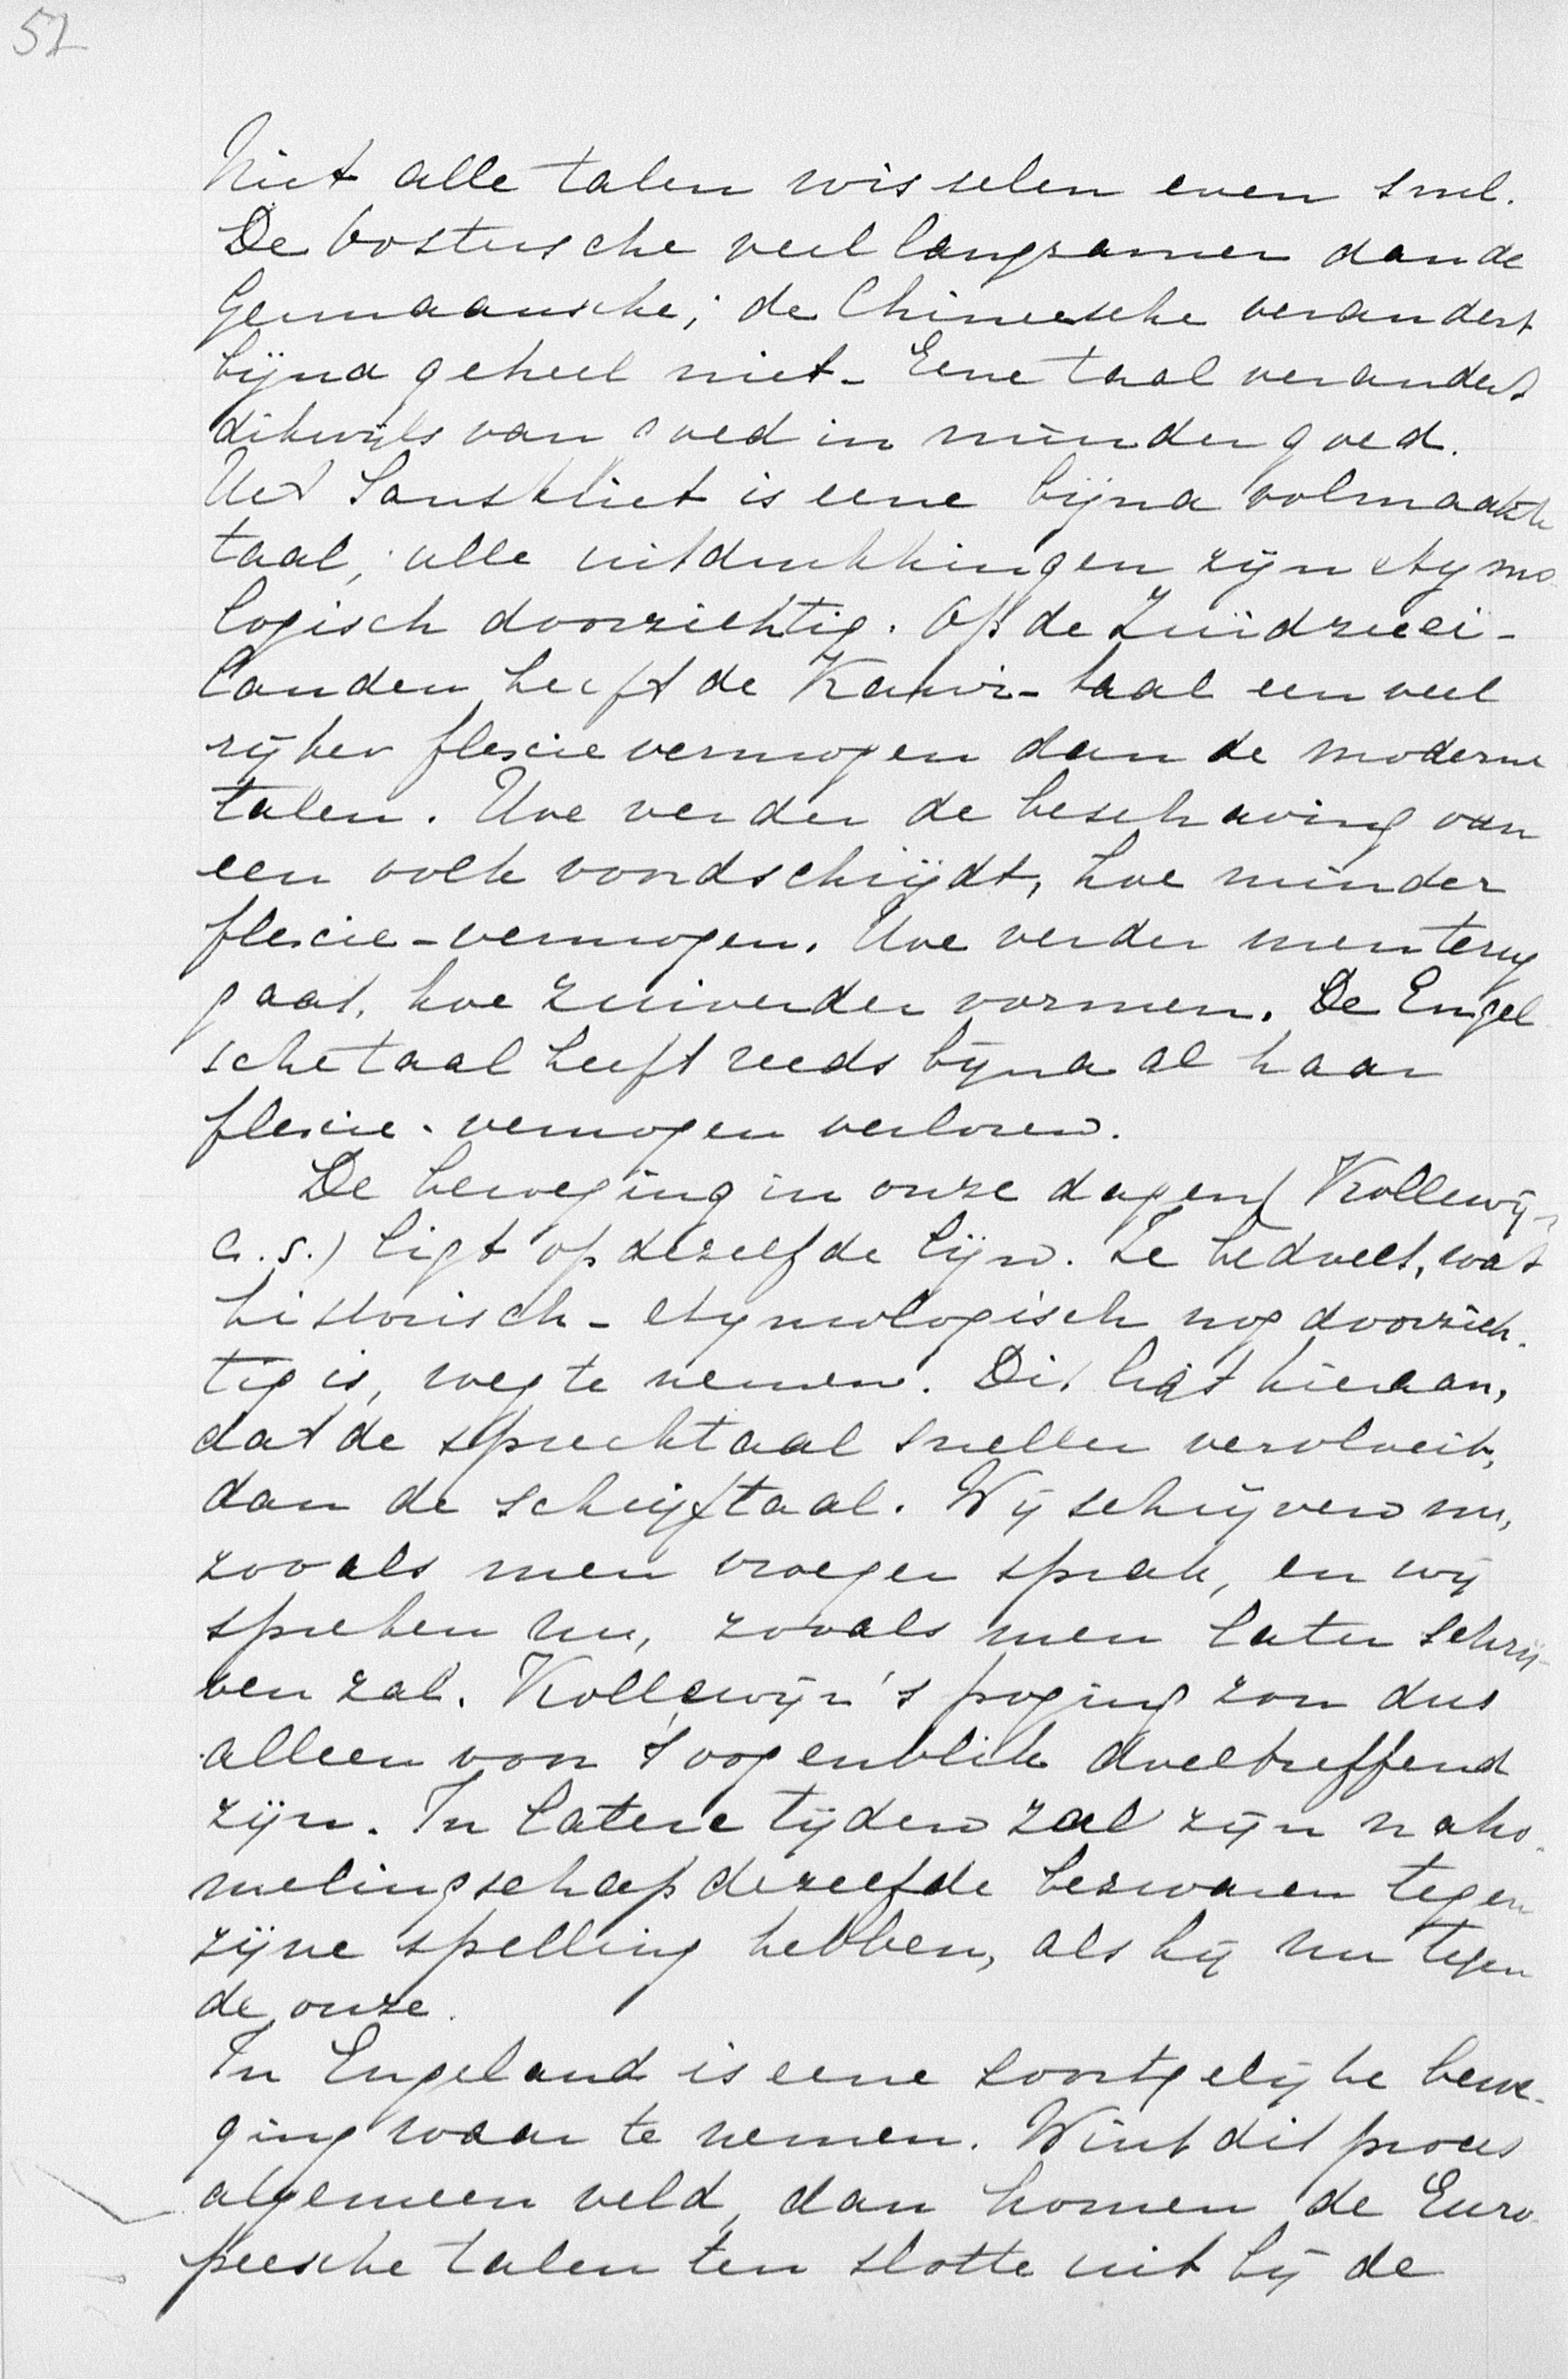 52
Niet alle talen wisselen even snel.
De Oostersche veel langzamer dan de
Germaansche; de Chineesche verandert
bijna geheel niet. Eene taal verandert
dikwijls van goed in minder goed.
Het Sanskriet is eene bijna volmaakte
taal; alle uitdrukkingen zijn etymo-
logisch doorzichtig. Op de Zuidzeeei-
landen heeft de Kawi-taal een veel
rijker flexievermogen dan de moderne
talen. Hoe verder de beschaving van
een volk voordschrijdt, hoe minder
flexie-vermogen. Hoe verder men terug
gaat, hoe zuiverder vormen. De Engel
sche taal heeft reeds bijna al haar
flexie-vermogen verloren.
De beweging in onze dagen (Kollewijn
c.s.) ligt op dezelfde lijn. Ze bedoelt, wat
historisch-etymologisch nog doorzich-
tig is, weg te nemen. Dit ligt hieraan,
dat de spreektaal sneller vervloeit,
dan de schrijftaal. Wij schrijven nu,
zooals men vroeger sprak, en wij
spreken nu, zooals men later schrij-
ven zal. Kollewijn's poging zou dus
alleen voor 't oogenblik doeltreffend
zijn. In latere tijden zal zijn nako-
melingschap dezelfde bezwaren tegen
zijne spelling hebben, als hij nu tegen
de onze.
In Engeland is eene soortgelijke bewe-
ging waar te nemen. Wint dit proces
algemeen veld, dan komen de Euro-
peesche talen ten slotte uit bij de